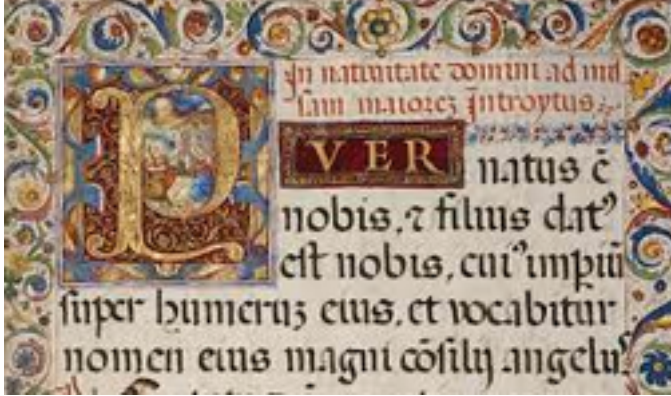 In natiuitate domini ad mis
sam maiorez Introytus
PVER
natus ē
nobis, ⁊ filius datꝰ
est nobis, cuiꝰ impiū
super humeruz eius, et vocabitur
nomen eius magni cōsilij angelus